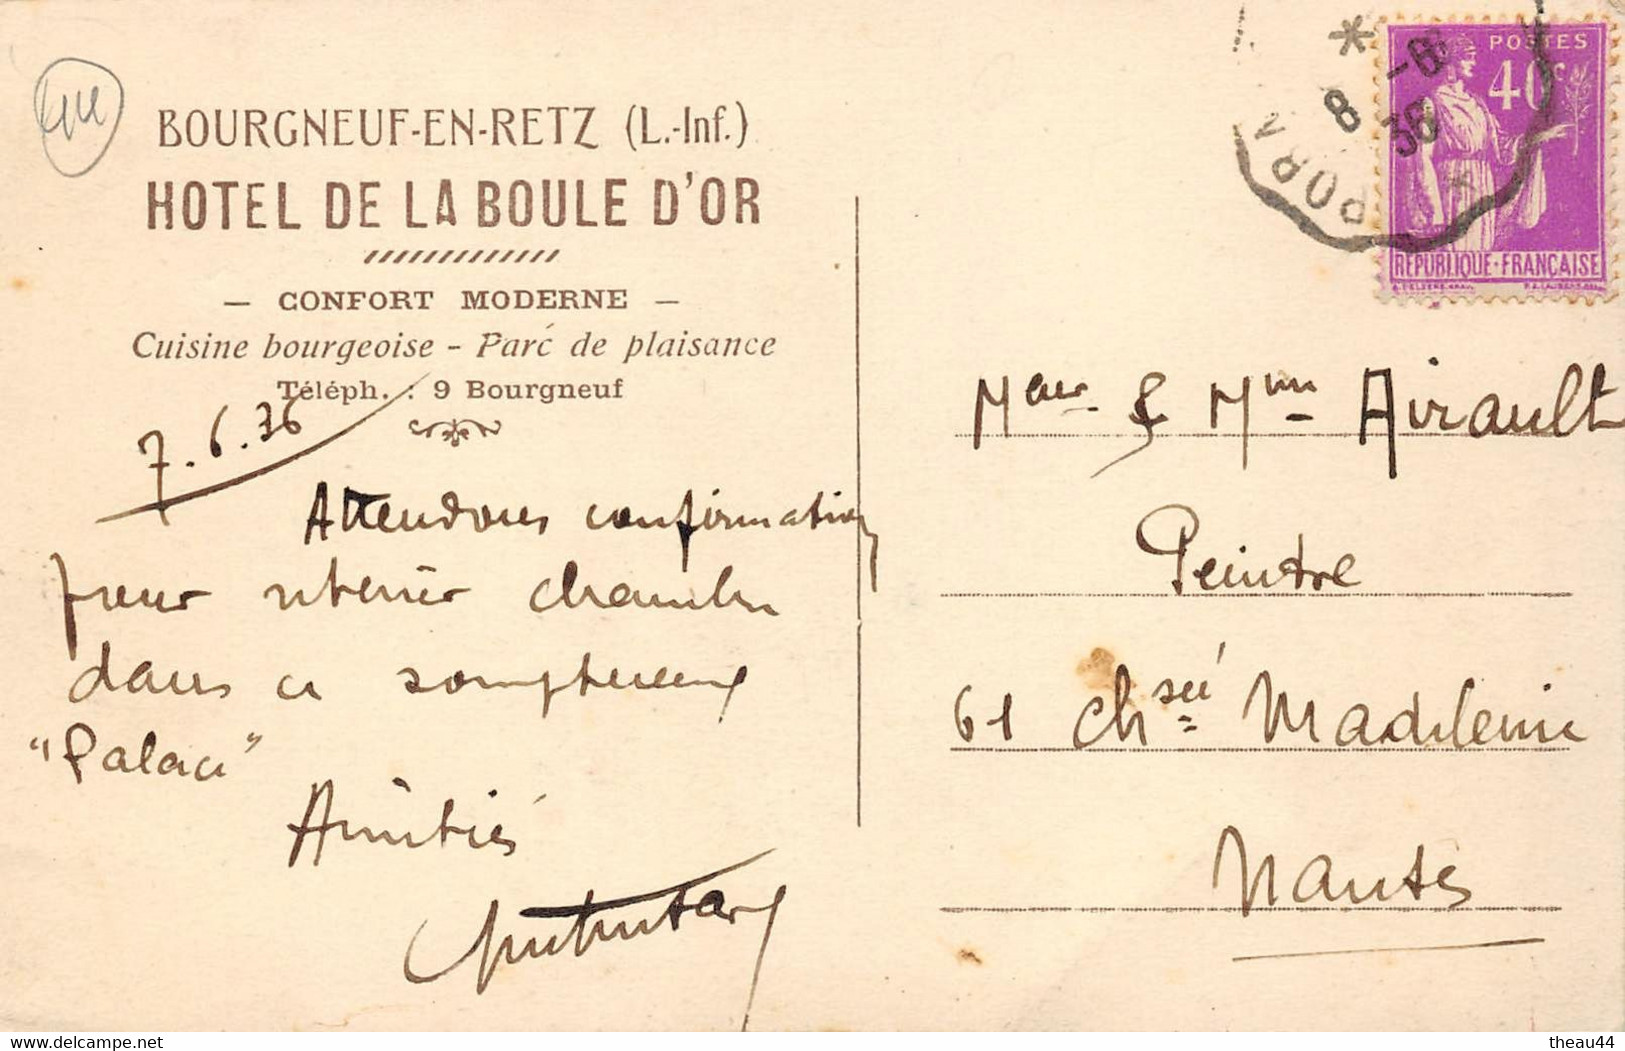 44
BOURGNEUF-EN-RETZ (L.-Inf.)
HOTEL DE LA BOULE D'OR
— CONFORT MODERNE —
Cuisine bourgeoise - Parc de plaisance
Téléph. : 9 Bourgneuf
7.6.36
Attendons confirmation
pour retenir chambre
dans ce somptueux
"Palace"
Amitiés
* 8 -6
36
PORN
POSTES
40c
REPUBLIQUE·FRANÇAISE
Meur & Mme Airault
Peintre
61 Chsée Madeleine
Nantes
www.delcampe.net
theau44